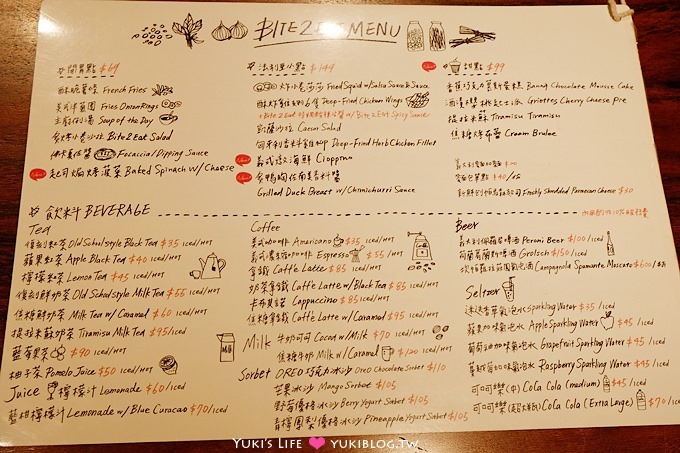 BITE2EAT MENU
開胃點 $69
酥脆薯條 French Fries
美式洋蔥圈 Fries Onion Rings
主廚例湯 Soup of the Day
Bite 2 Eat Salad
佛卡夏佐醬 Focaccia/Dipping Sauce
起司焗烤菠菜 Baked Spinach w/ Cheese
$149
Fried Squid w/ Salsa Sauce
Deep-Fried Chicken Wings
w/ Bite 2 Eat Spicy Sauce
凱薩沙拉 Caesar Salad
匈牙利香料雞柳 Deep-Fried Herb Chicken Fillet
義式燉海鮮 Cioppino
Grilled Duck Breast w/ Chimichurri Sauce
甜點 $99
香蕉巧克力慕斯蛋糕 Banana Chocolate Mousse Cake
酒漬櫻桃起士派 Griottes Cherry Cheese Pie
提拉米蘇 Tiramisu
焦糖烤布蕾 Cream Brulee
Freshly Shredded Parmesan Cheese $30
飲料 BEVERAGE
Tea
復刻紅茶 Old School style Black Tea $35 iced/Hot
蘋果紅茶 Apple Black Tea $40 iced/Hot
檸檬紅茶 Lemon Tea $45 iced/Hot
復刻鮮奶茶 Old School style Milk Tea $55 iced/Hot
焦糖鮮奶茶 Milk Tea w/ Caramel $60 iced/Hot
提拉米蘇奶茶 Tiramisu Milk Tea $95/iced
藍莓果茶 $90 iced/Hot
柚子茶 Pomelo Juice $50 iced/Hot
Juice 檸檬汁 Lemonade $60/iced
藍柑檸檬汁 Lemonade w/ Blue Curacao $70/iced
Coffee
美式咖啡 Americano $35 iced/Hot
美式濃縮咖啡 Espresso $35/Hot
拿鐵 Caffè Latte $85 iced/Hot
奶茶拿鐵 Caffè Latte w/ Black Tea $85 iced/Hot
卡布其諾 Cappuccino $85 iced/Hot
焦糖拿鐵 Caffè Latte w/ Caramel $95 iced/Hot
Milk 牛奶可可 Cocoa w/ Milk $70 iced/Hot
焦糖牛奶 Milk w/ Caramel $120 iced/Hot
Sorbet OREO巧克力冰沙 Oreo Chocolate Sorbet $110
芒果冰沙 Mango Sorbet $105
野莓優格冰沙 Berry Yogurt Sorbet $105
青檸鳳梨優格冰沙 Pineapple Yogurt Sorbet $105
Beer
Peroni Beer $100/iced
Grolsch $150/iced
Campagnola Spumante Moscato $600
Seltzer
sparkling Water $35/iced
蘋果加味氣泡水 Apple Sparkling Water $45/iced
葡萄柚加味氣泡水 Grapefruit Sparkling Water $45/iced
覆盆莓加味氣泡水 Raspberry Sparkling Water $45/iced
可口可樂(中) Coca Cola (medium) $45/iced
可口可樂 Coca Cola (Extra Large) $70/iced
YUKI'S LIFE YUKIBLOG.TW